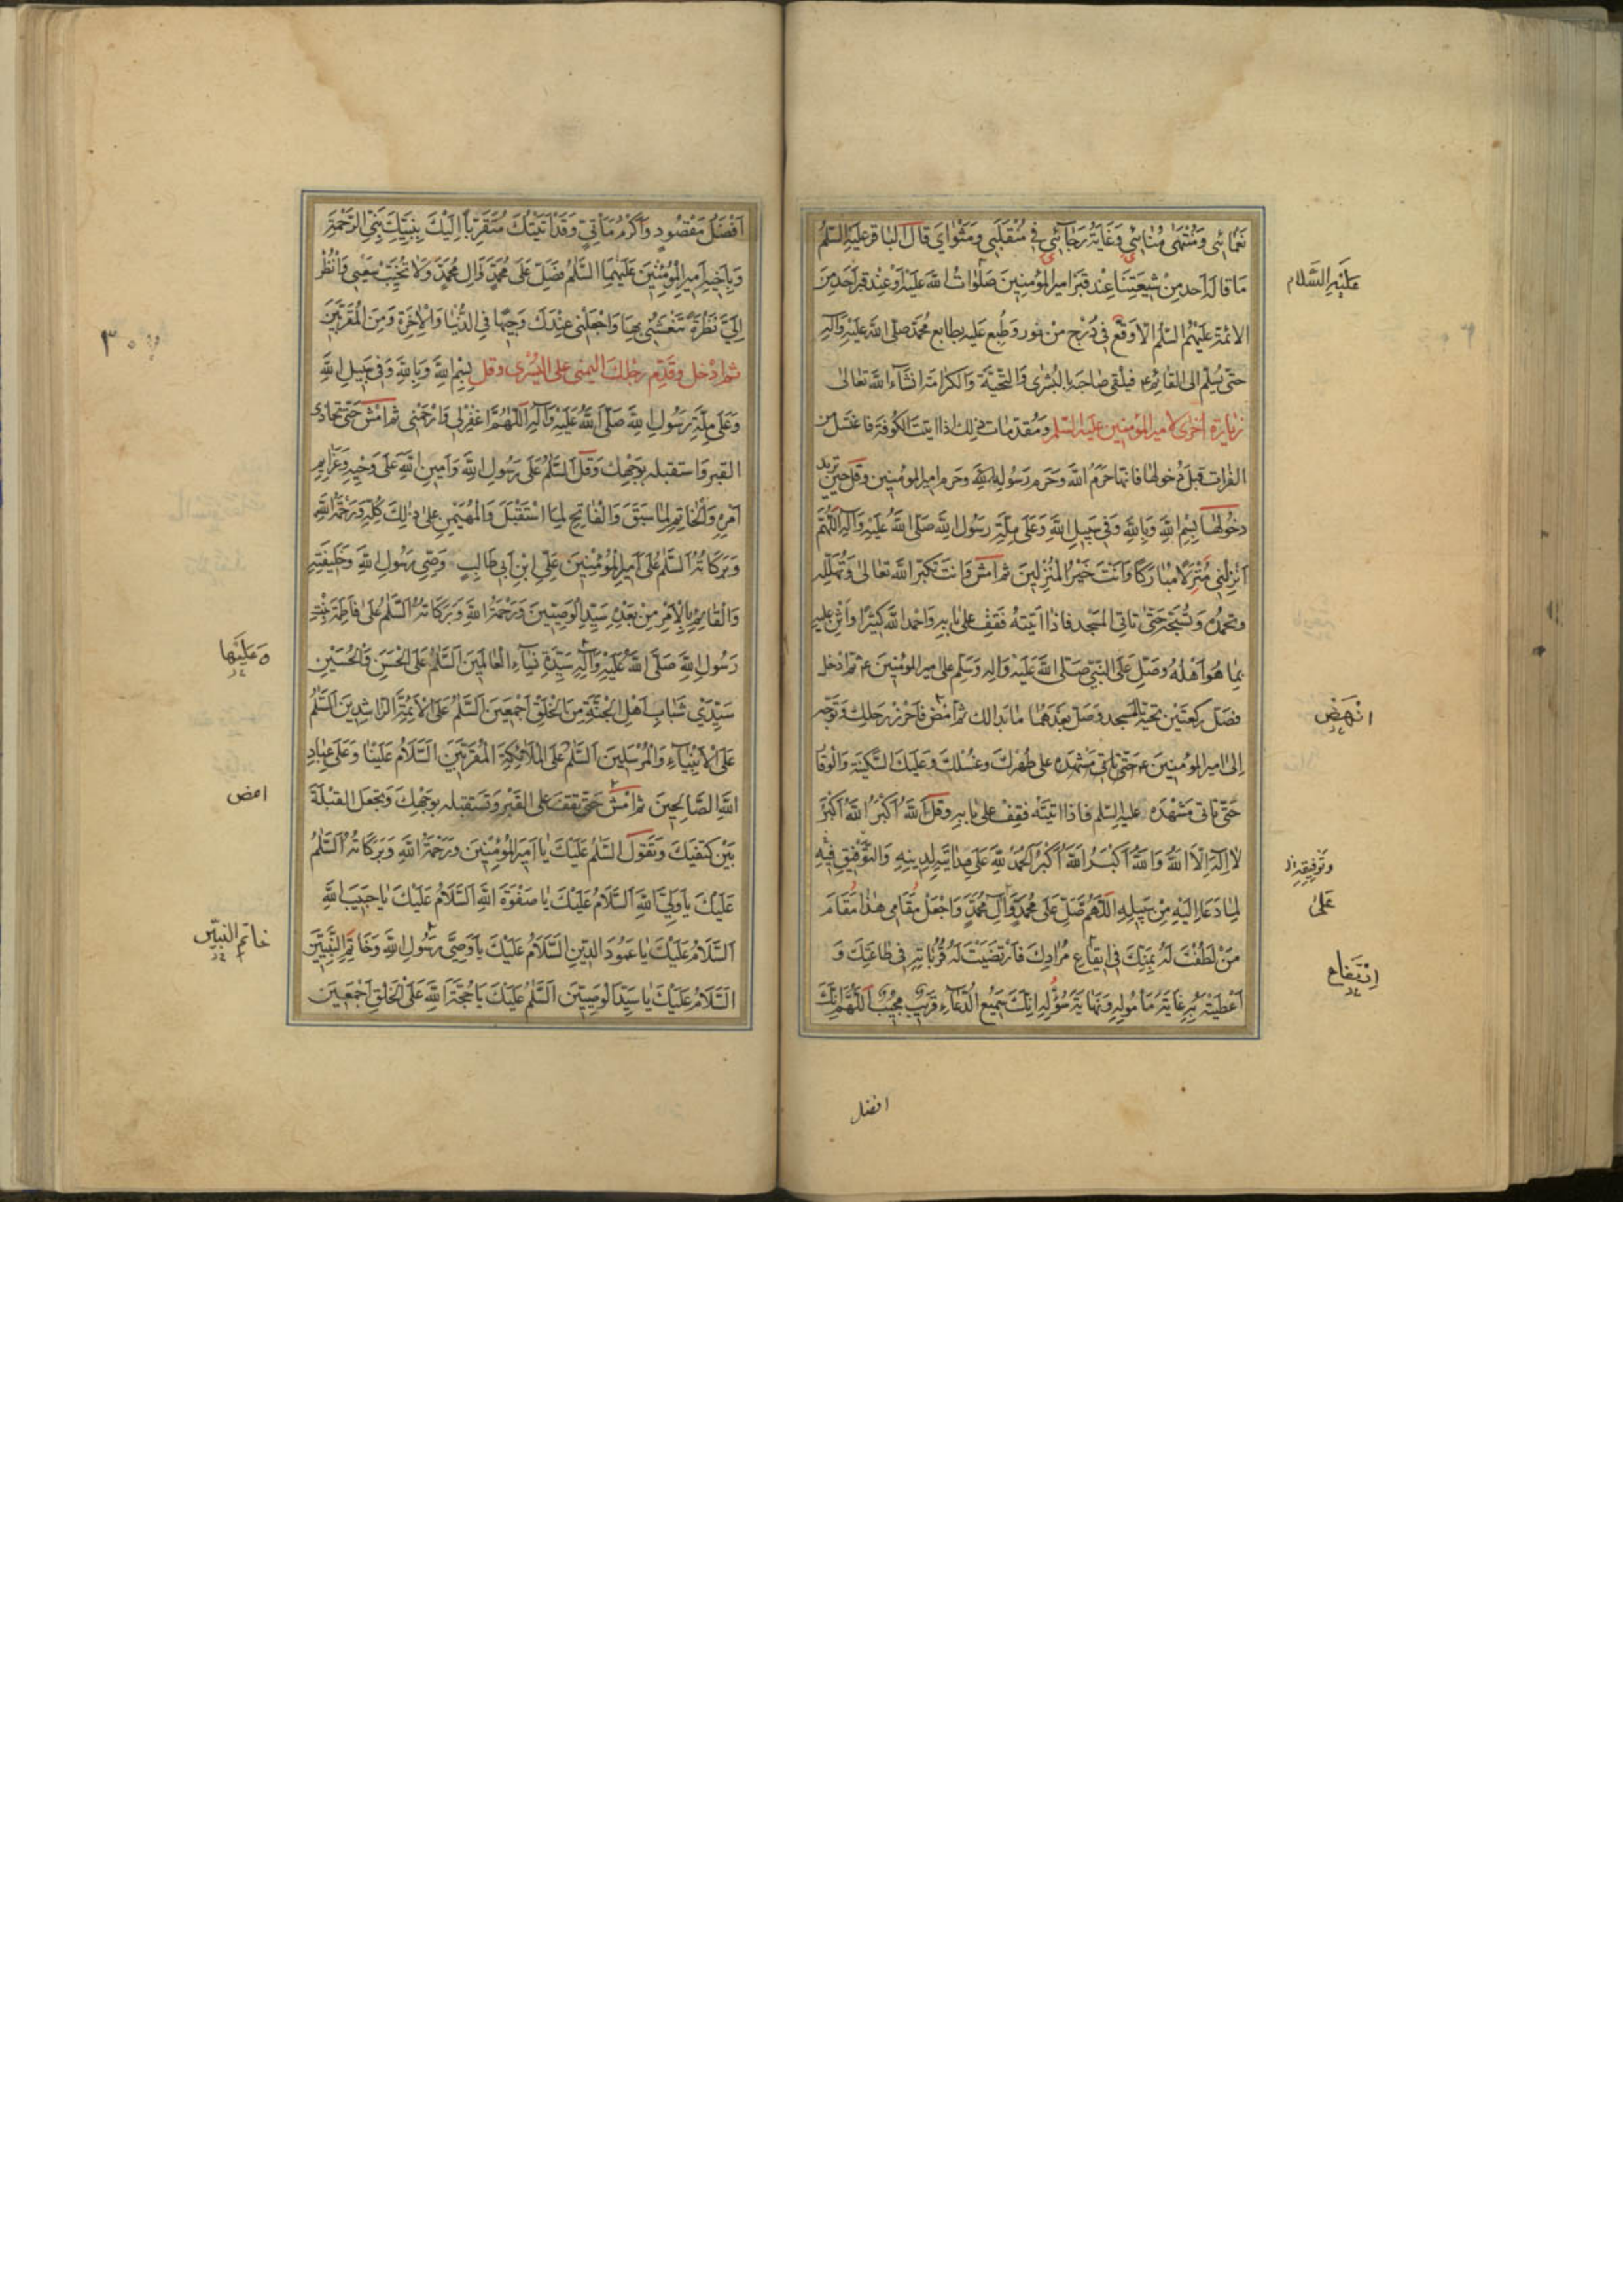 نَعْمائي وَمُنْتَهى مُنائي وَغايَةُ رَجائي في مُنْقَلَبي وَمَثْوايَ قال الباقر عليه السلم
ما قاله احد من شيعتنا عند قبر امير المؤمنين صلوات الله عليه او عند قبر احد من
الائمة عليهم السلم الا وقع في درج من نور وطبع عليه بطابع محمد صلى الله عليه وآله
حتى يسلم الى القائم ع فيلقى صاحبه البشرى والتحية والكرامة انشاء الله تعالى
زيارة اخرى لامير المؤمنين عليه السلم ومقدمات ذلك اذا اتيت الكوفة فاغتسل من
الفرات قبل دخولها فانها حرم الله وحرم رسوله وحرم امير المؤمنين وقل حين تريد
دخولها بسم الله وبالله وفي سبيل الله وعلى ملة رسول الله صلى الله عليه وآله اللهم
انزلني منزلا مباركا وانت خير المنزلين ثم امش وانت تكبر الله تعالى وتهلله
وتحمده وتسبحه حتى تاتي المسجد فاذا اتيته فقف على بابه واحمد الله كثيرا واثن عليه
بما هو اهله وصل على النبي صلى الله عليه واله وسلم على امير المؤمنين ع ثم ادخل
فصل ركعتين تحية المسجد وصل بعدهما ما بدالك ثم امض فاحرز رحلك وتوجه
الى امير المؤمنين ع حتى تاتي مشهده على طهرك وغسلك وعليك السكينة والوقار
حتى تاتي مشهده عليه السلم فاذا اتيته فقف على بابه وقل الله اكبر الله اكبر
لا اله الا الله والله اكبر الله اكبر الحمد لله على هدايته لدينه والتوفيق فيه
لما دعا اليه من سبيله اللهم صل على محمد وآل محمد واجعل مقامي هذا مقام
من لطفت له بمنك في ايقاع مرادك فارتضيت له قرباته في طاعتك و
اعطيته به غاية مأموله ونهاية سؤله انك سميع الدعاء قريب مجيب اللهم انك
افضل
عليه السلام
انهض
وتوفيقه
على
افضل مقصود واكرم مأتي وقد اتيتك متقربا اليك بنبيك نبي الرحمة
وباخيه امير المؤمنين عليهما السلم فصل على محمد وال محمد ولا تخيب سعيي وانظر
الي نظرة تنعشني بها واجعلني عندك وجيها في الدنيا والاخرة ومن المقربين
ثم ادخل وقدم رجلك اليمنى على اليسرى وقل بسم الله وبالله وفي سبيل الله
وعلى ملة رسول الله صلى الله عليه وآله اللهم اغفر لي وارحمني ثم امش حتى تحاذي
القبر واستقبله بوجهك وقل السلم على رسول الله وامين الله على وحيه وعزايم
امره والخاتم لما سبق والفاتح لما استقبل والمهيمن على ذلك كله ورحمة الله
وبركاته السلم على امير المؤمنين علي ابن ابي طالب وصي رسول الله وخليفته
والقايم بالامر من بعده سيد الوصيين ورحمة الله وبركاته السلم على فاطمة بنت
رسول الله صلى الله عليه وآله سيدة نساء العالمين السلم على الحسن والحسين
سيدي شباب اهل الجنة من الخلق اجمعين السلم على الائمة الراشدين السلم
على الانبياء والمرسلين السلم على الملائكة المقربين السلام علينا وعلى عباد
الله الصالحين ثم امش حتى تقف على القبر وتستقبله بوجهك وتجعل القبلة
بين كتفيك وتقول السلم عليك يا امير المؤمنين ورحمة الله وبركاته السلم
عليك يا ولي الله السلام عليك يا صفوة الله السلام عليك يا حبيب الله
السلام عليك يا عمود الدين السلام عليك يا وصي رسول الله وخاتم النبيين
السلام عليك يا سيد الوصيين السلم عليك يا حجة الله على الخلق اجمعين
وعليها
امض
خاتم النبيين